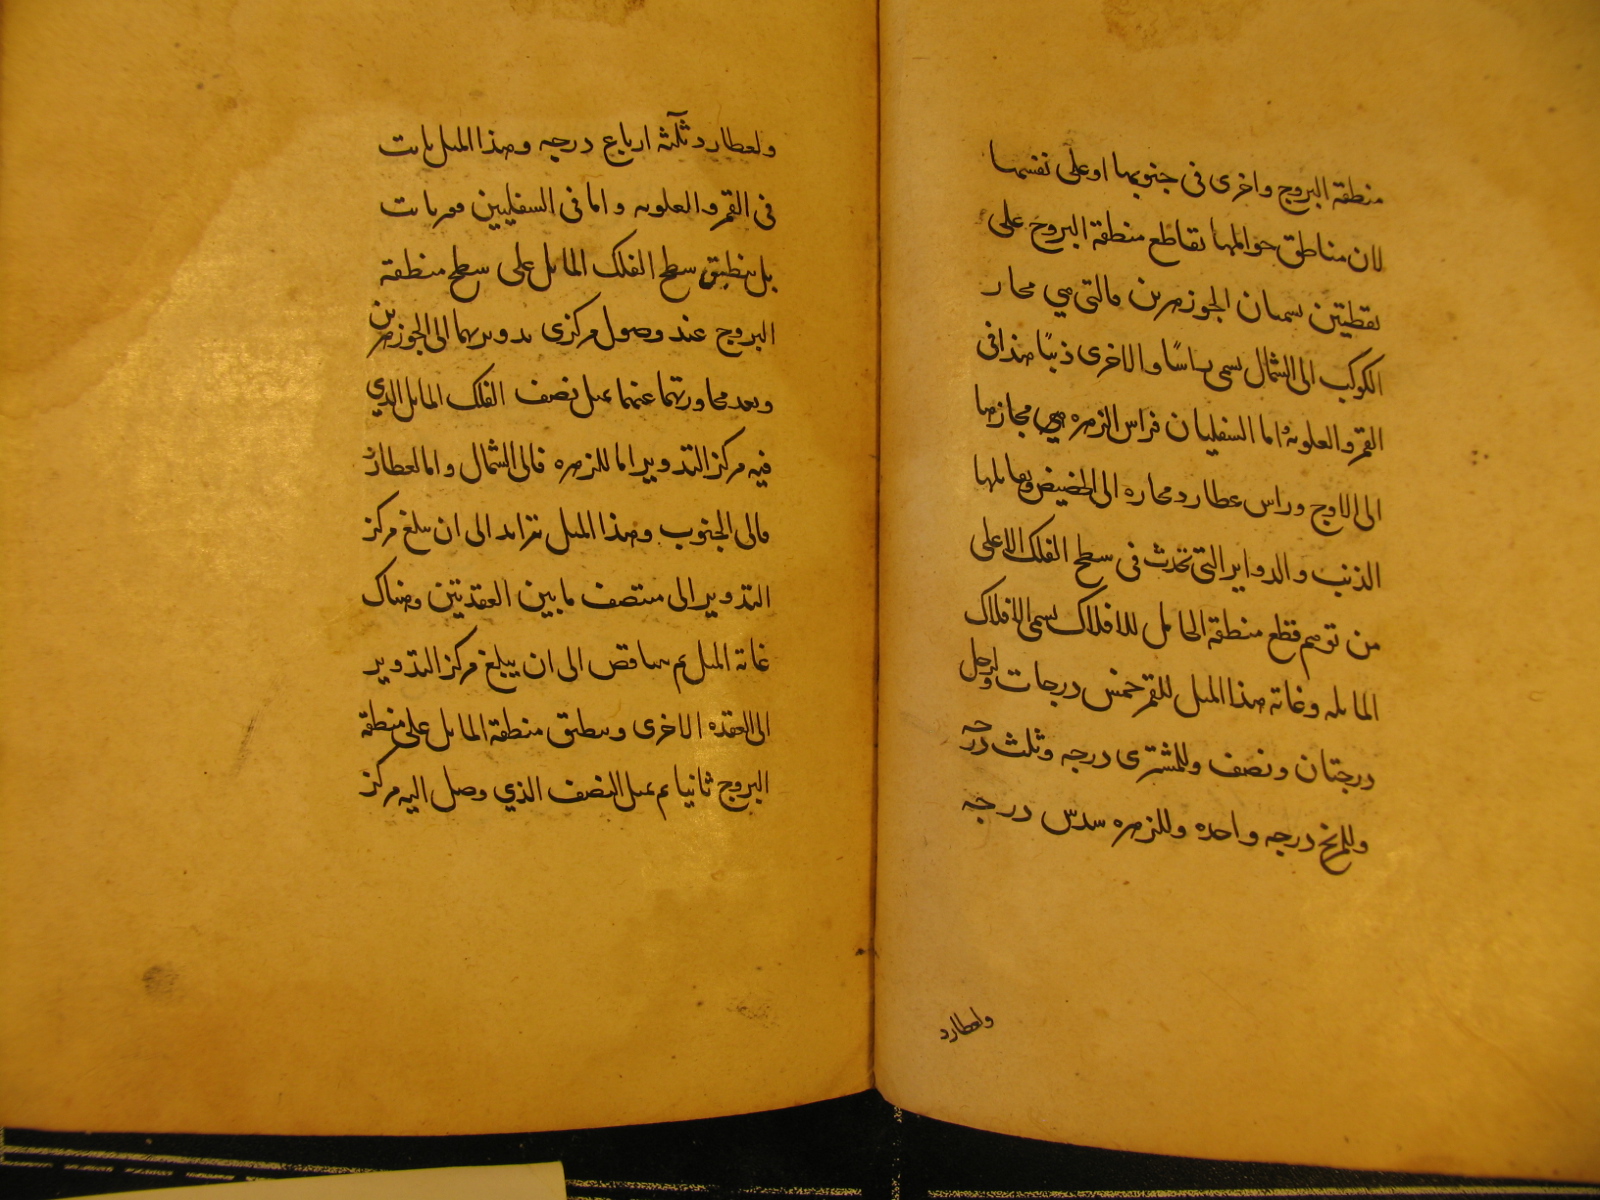 منطقة البروج واخرى فى جنوبها او على نفسها
لان مناطق حواملها تقاطع منطقة البروج على
نقطتين يسميان الجوزهرين فالتى هي مجاز
الكوكب الى الشمال يسمى راسًا والاخرى ذنبًا هذا فى
القمر والعلوية اما السفليان فراس الزهره هي مجازها
الى الاوج وراس عطارد مجازه الى الحضيض ويقابلها
الذنب والدواير التى تحدث فى سطح الفلك الاعلى
من توهم قطع منطقة الحامل للافلاك يسمى الافلاك
المايله وغاية هذا الميل للقمر خمس درجات ولزحل
درجتان ونصف وللمشترى درجه وثلث درجه
وللمريخ درجه واحده وللزهره سدس درجه
ولعطارد
ولعطارد ثلثة ارباع درجه وهذا الميل ثابت
فى القمر والعلويه واما فى السفليين فغير ثابت
بل ينطبق سطح الفلك المايل على سطح منطقة
البروج عند وصول مركزى تدويريهما الى الجوزهرين
وبعد مجاوزتهما عنهما يميل نصف الفلك المايل الذي
فيه مركز التدوير اما للزهره فالى الشمال واما لعطارد
فالى الجنوب وهذا الميل يتزايد الى ان يبلغ مركز
التدوير الى منتصف ما بين العقدتين وهناك
غاية الميل ثم يتناقص الى ان يبلغ مركز التدوير
الى العقده الاخرى وينطبق منطقة المايل على منطقة
البروج ثانيا ثم يميل النصف الذي وصل اليه مركز